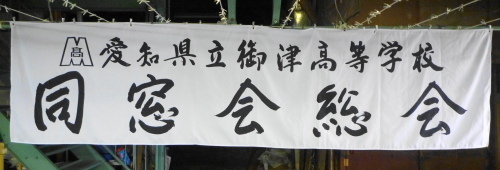 高
愛知県立御津高等学校
同窓会総会